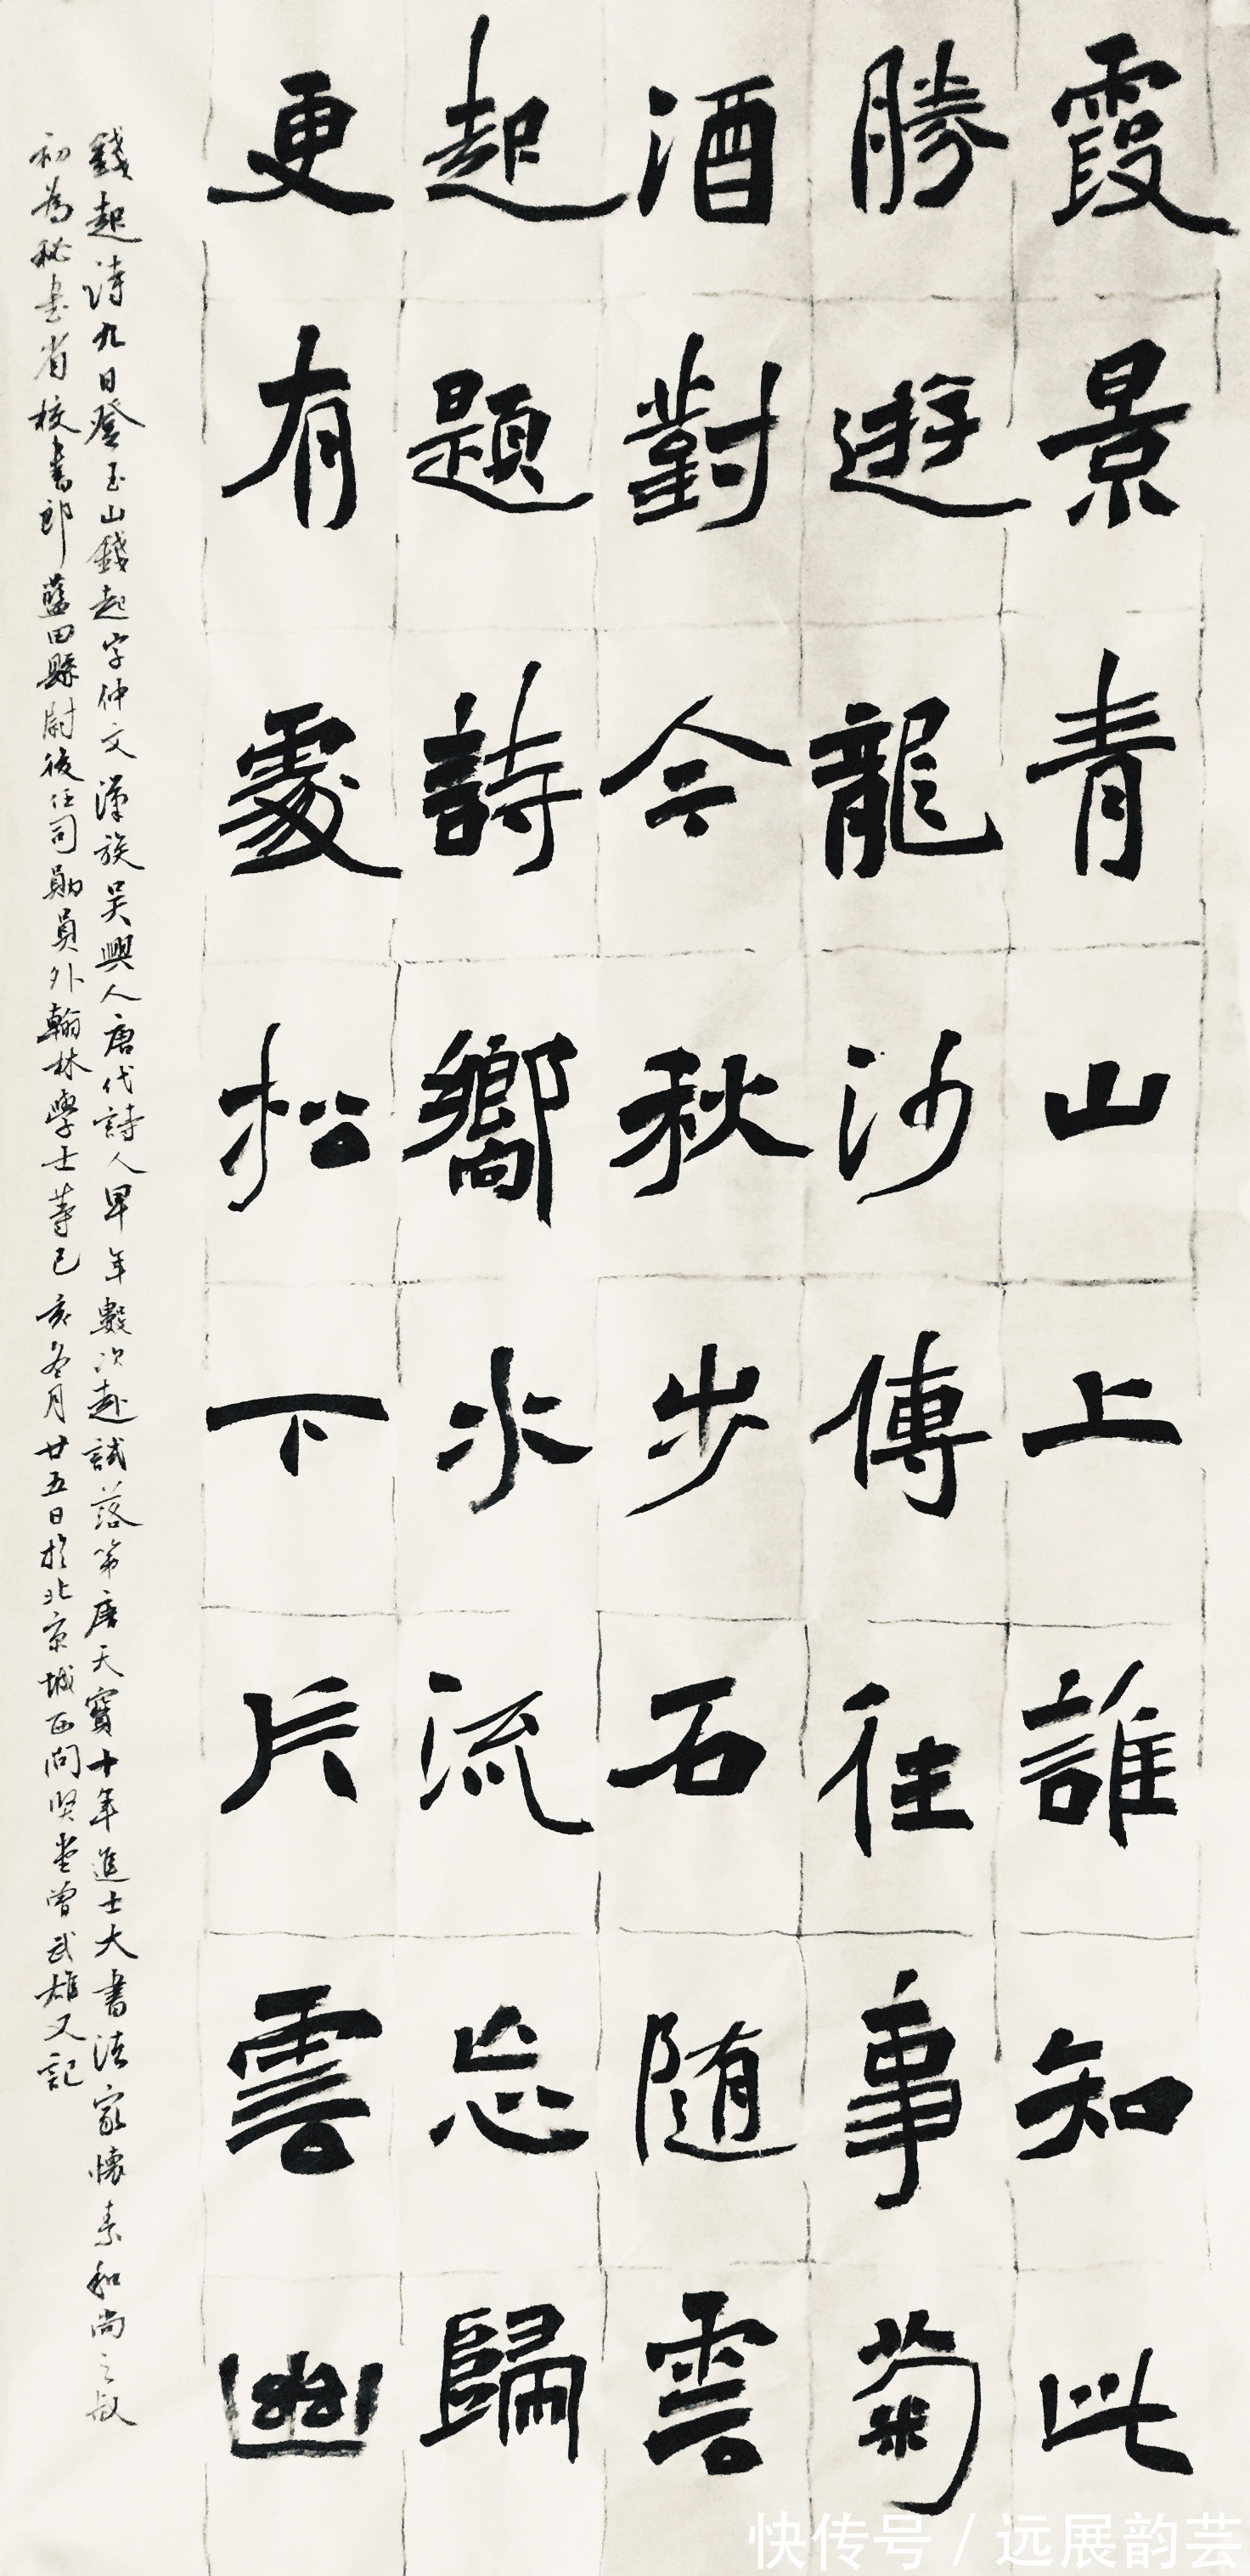 霞景青山上誰知此
勝遊龍沙傳往事菊
酒對今秋步石隨雲
起題詩嚮水流忘歸
更有處松下片雲幽
錢起詩九日登玉山錢起字仲文漢族吳興人唐代詩人早年數次赴試落第唐天寶十年進士大書法家懷素和尚之叔
初為秘書省校書郎藍田縣尉後任司勛員外翰林學士等己亥冬月廿五日於北京城西問賢堂曾武雄又記
快传号/远展韵芸